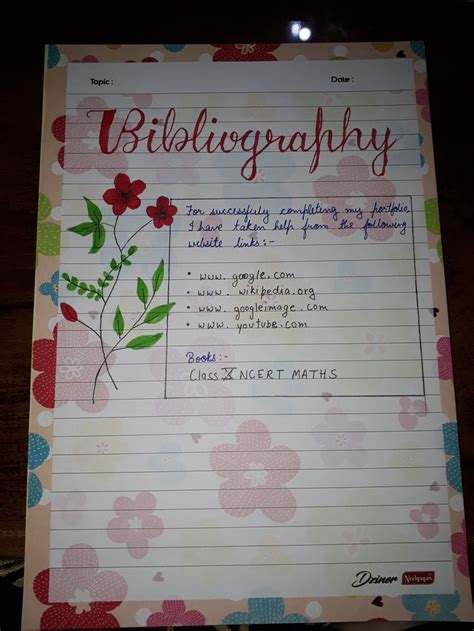 Topic :
Date :
Bibliography
For successfully completing my portfolio,
I have taken help from the following
website links:-
• www. google.com
• www. wikipedia.org
• www. googleimage.com
• www. youtube.com
Books:-
Class X NCERT MATHS
Dziner